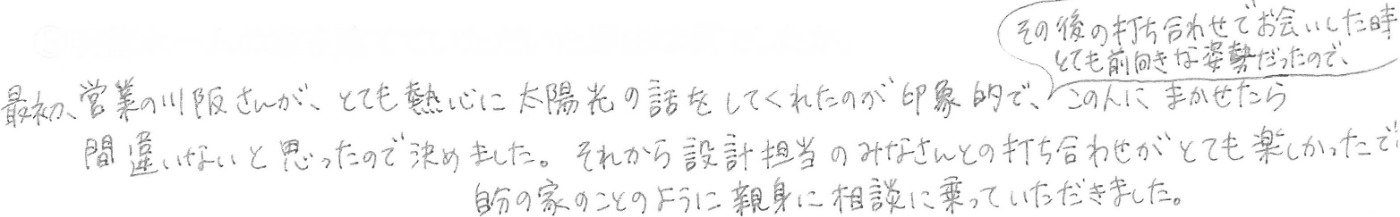 その後の打ち合わせでお会いした時
とても前向きな姿勢だったので、
最初、営業の川阪さんが、とても熱心に太陽光の話をしてくれたのが印象的で、この人にまかせたら
間違いないと思ったので決めました。それから設計担当のみなさんとの打ち合わせがとても楽しかったで
自分の家のことのように親身に相談に乗っていただきました。